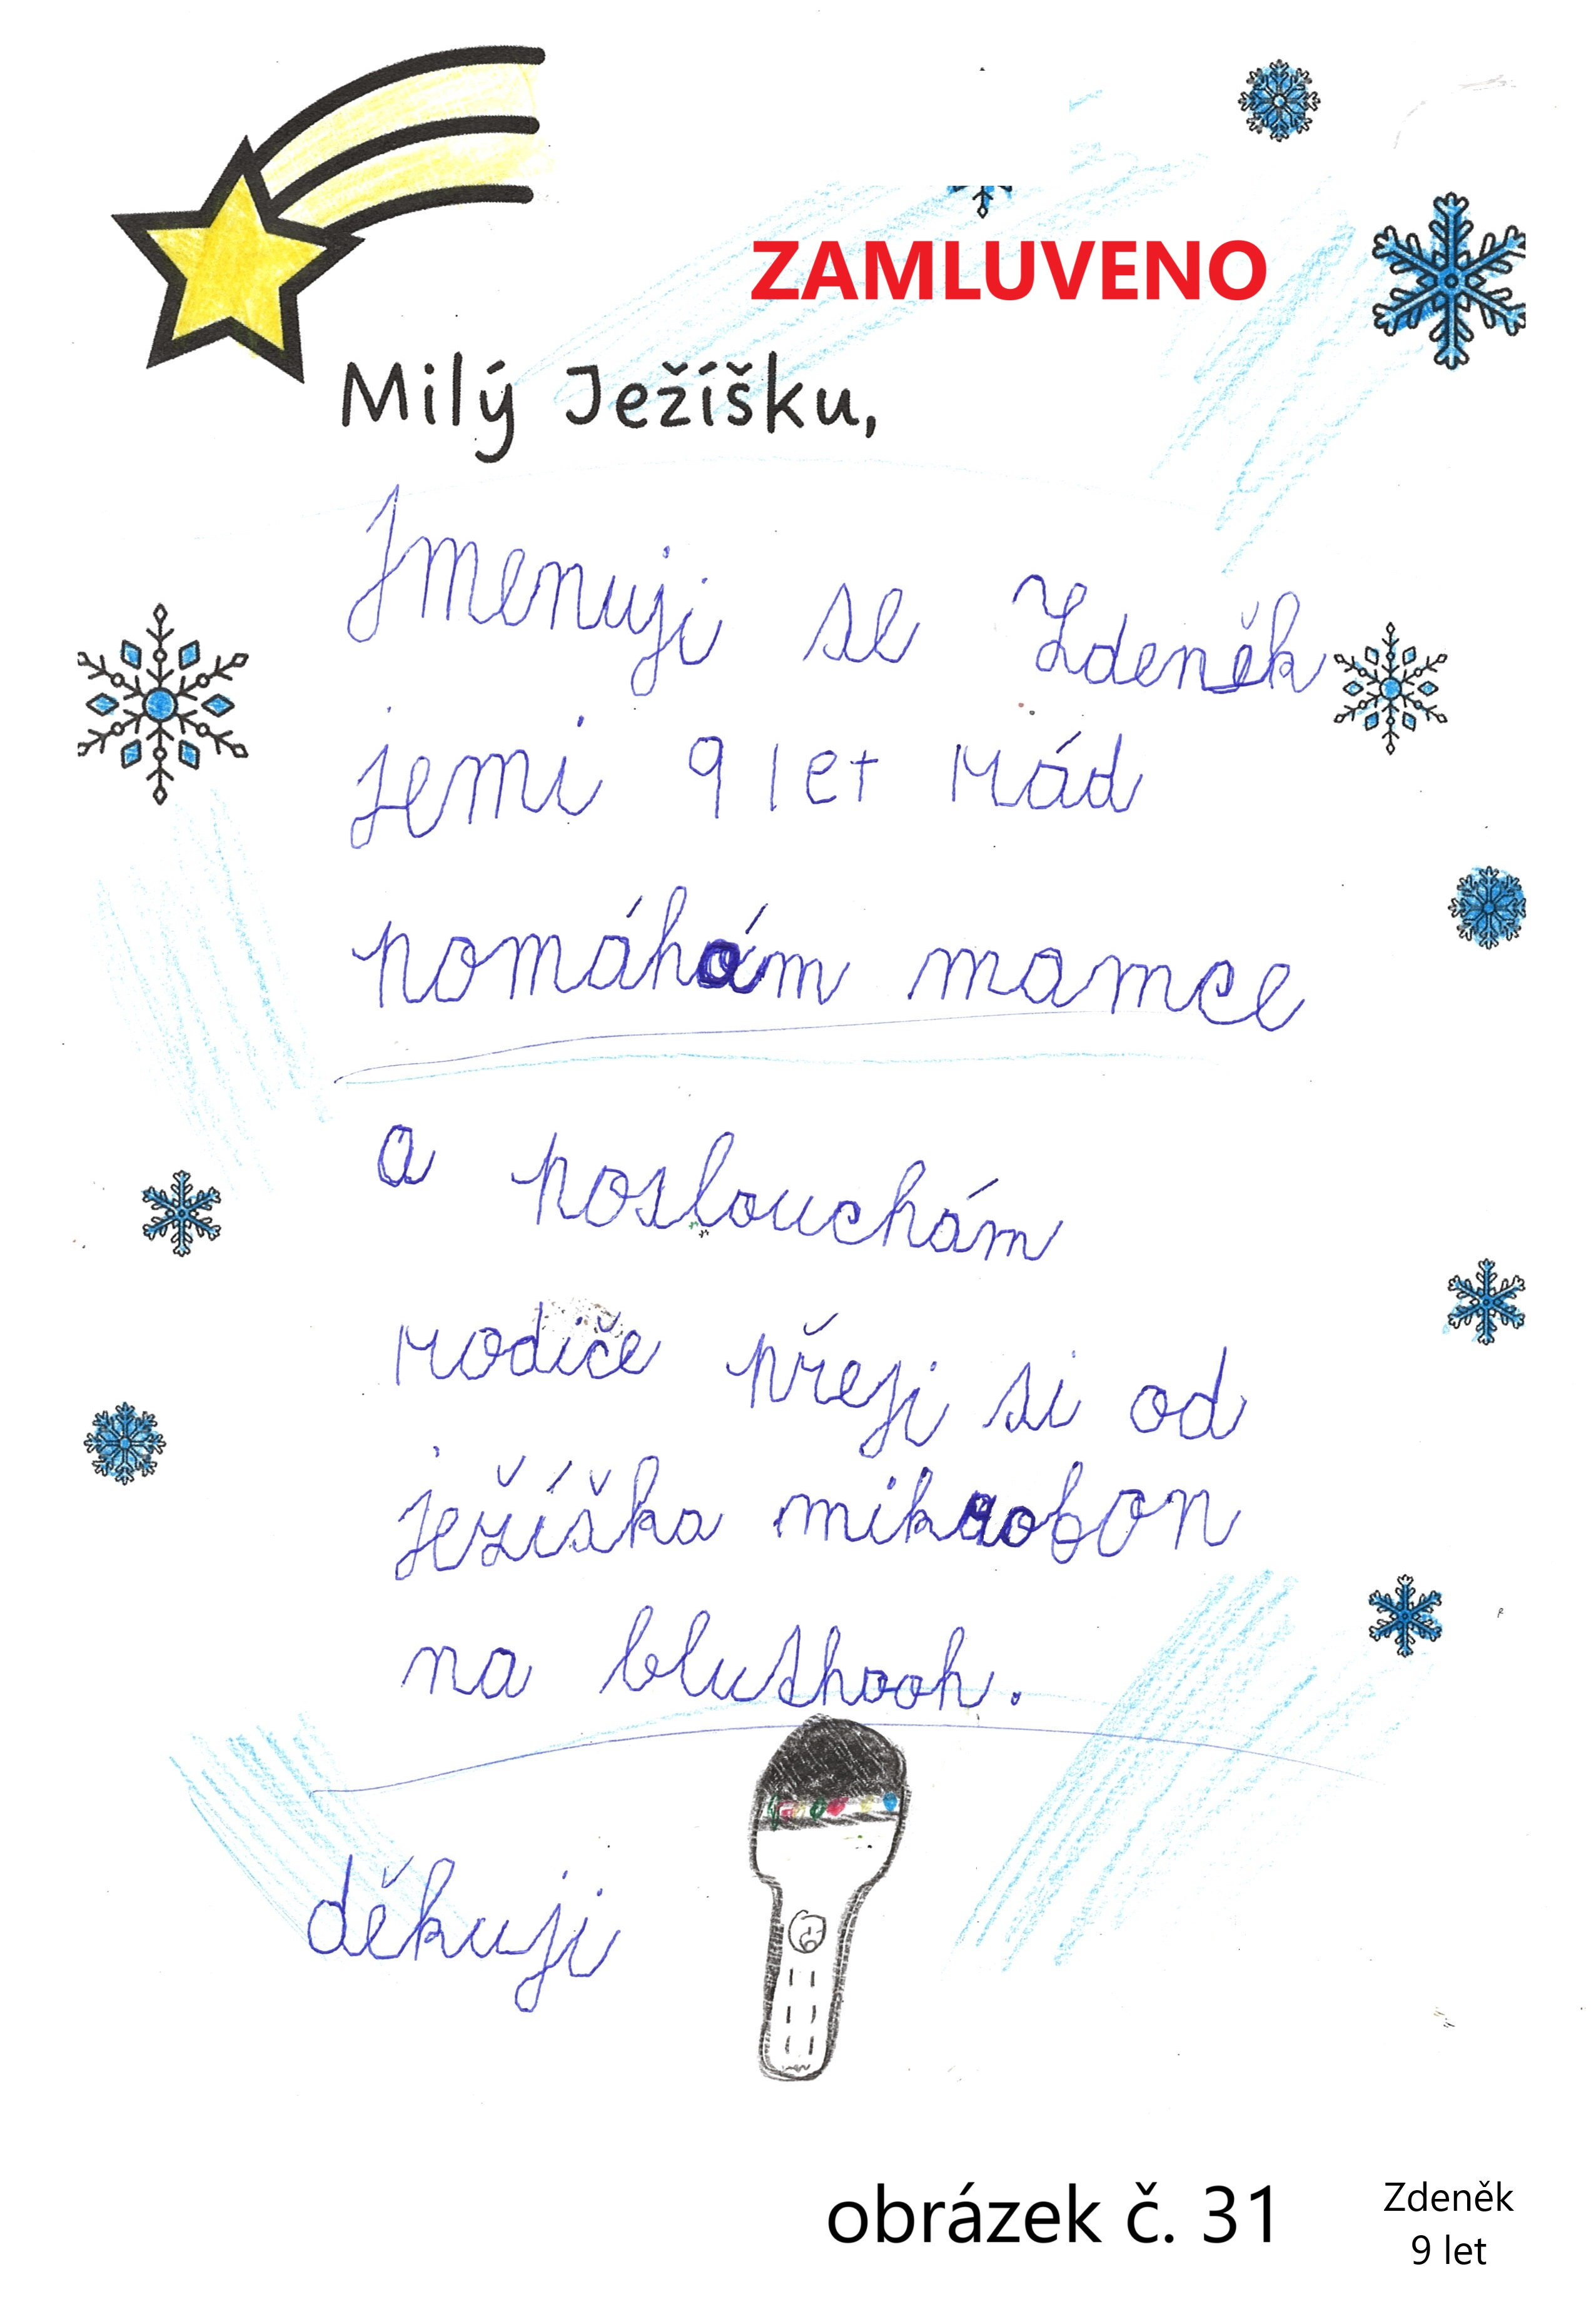 ZAMLUVENO
Milý Ježíšku,
Jmenuji se Zdeněk
jemi 9 let rád
pomáhám mamce
a poslouchám
rodiče přeji si od
ježíška mikrobon
na bluthooh.
děkuji
obrázek č. 31
Zdeněk
9 let